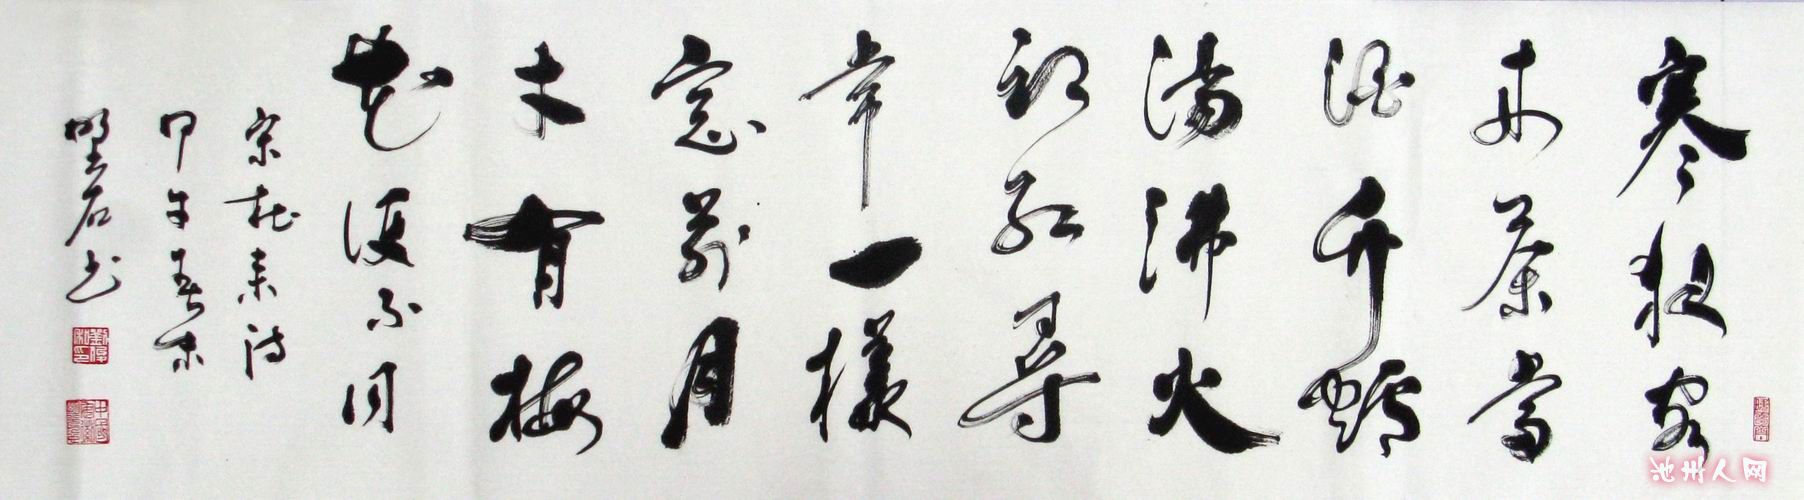 寒夜客
来茶當
酒竹爐
湯沸火
初紅尋
常一樣
窓前月
才有梅
花便不同
宋杜耒诗
甲午春末
石书
池州人网